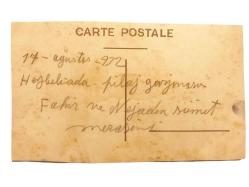 CARTE POSTALE
14 - ağustos - 922
Heybeliada - pilaj gazinosu
Fahir ve Nejadın sünnet
merasimi